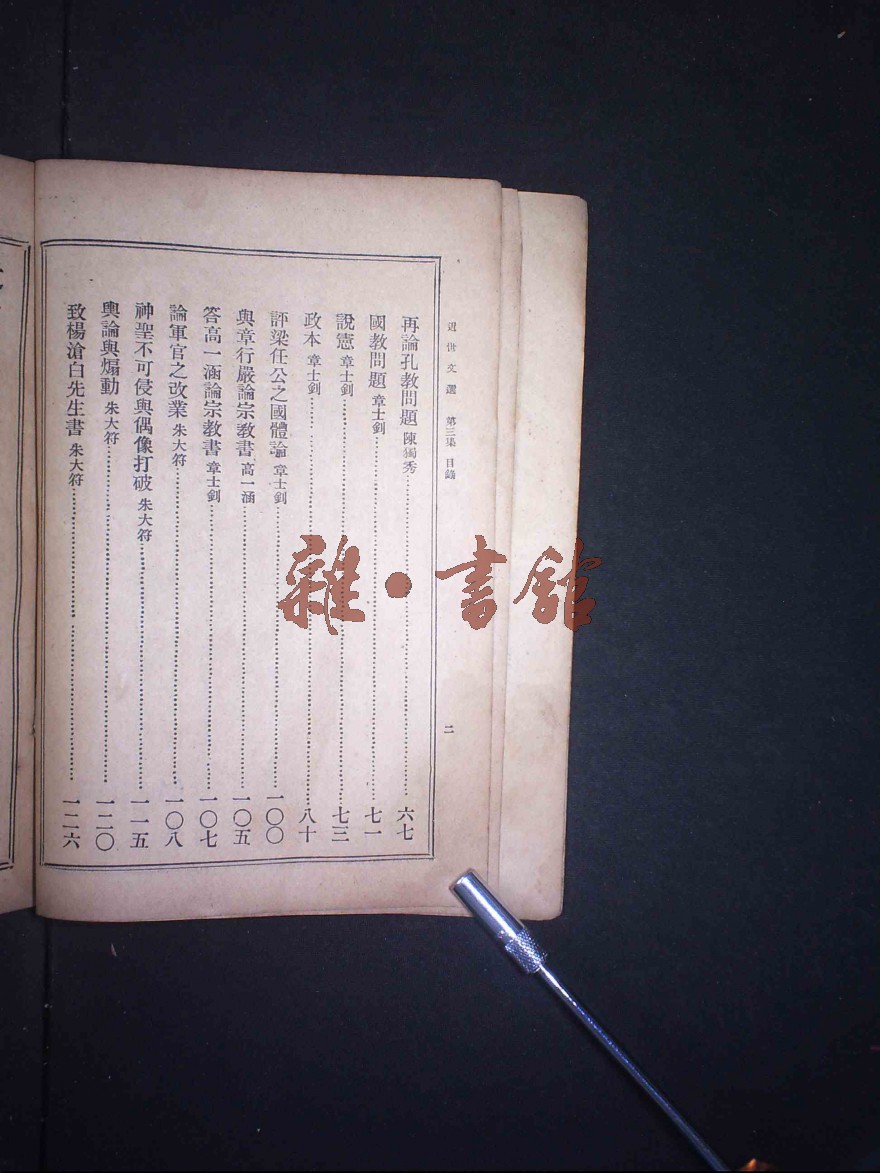 近世文選 第三集 目錄
二
再論孔教問題 陳獨秀 六七
國教問題 章士釗 七一
說憲 章士釗 七三
政本 章士釗 八十
評梁任公之國體論 章士釗 一〇〇
與章行嚴論宗教書 高一涵 一〇五
答高一涵論宗教書 章士釗 一〇七
論軍官之改業 朱大符 一〇八
神聖不可侵與偶像打破 朱大符 一一五
輿論與煽動 朱大符 一二〇
致楊滄白先生書 朱大符 一二六
雜·書館